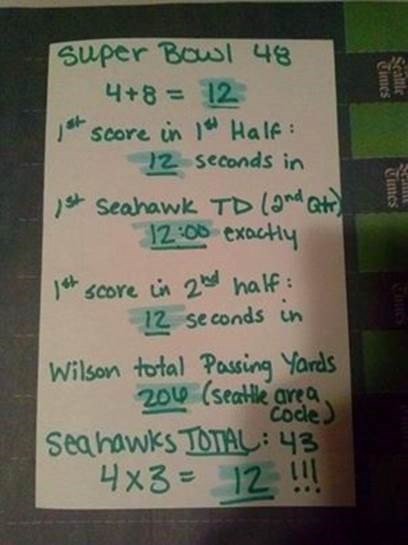 Super Bowl 48
4+8 = 12
1st score in 1st Half:
12 seconds in
1st Seahawk TD (2nd Qtr)
12:00 exactly
1st score in 2nd half:
12 seconds in
Wilson total Passing Yards
206 (seattle area
code)
Seahawks TOTAL: 43
4x3 = 12 !!!
Seattle
Times